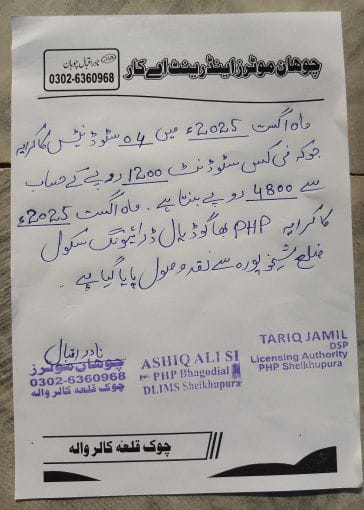 چوھان موٹرز اینڈ رینٹ اے کار
نادر اقبال چوہان
0302-6360968
ماہ اگست 2025ء میں 04 سٹوڈنٹس کا کرایہ
جوکہ فی کس سٹوڈنٹ 1200 روپے کے حساب
سے 4800 روپے بنتا ہے۔ ماہ اگست 2025ء
کا کرایہ PHP بھاگوڈیال ڈرائیونگ سکول
ضلع شیخوپورہ سے نقد وصول پایا گیا ہے۔
نادر اقبال
چوھان موٹرز
0302-6360968
چوک قلعہ کالر والہ
ASHIQ ALI SI
PHP Bhagodial
DLIMS Sheikhupura
TARIQ JAMIL
DSP
Licensing Authority
PHP Sheikhupura
چوک قلعہ کالر والہ